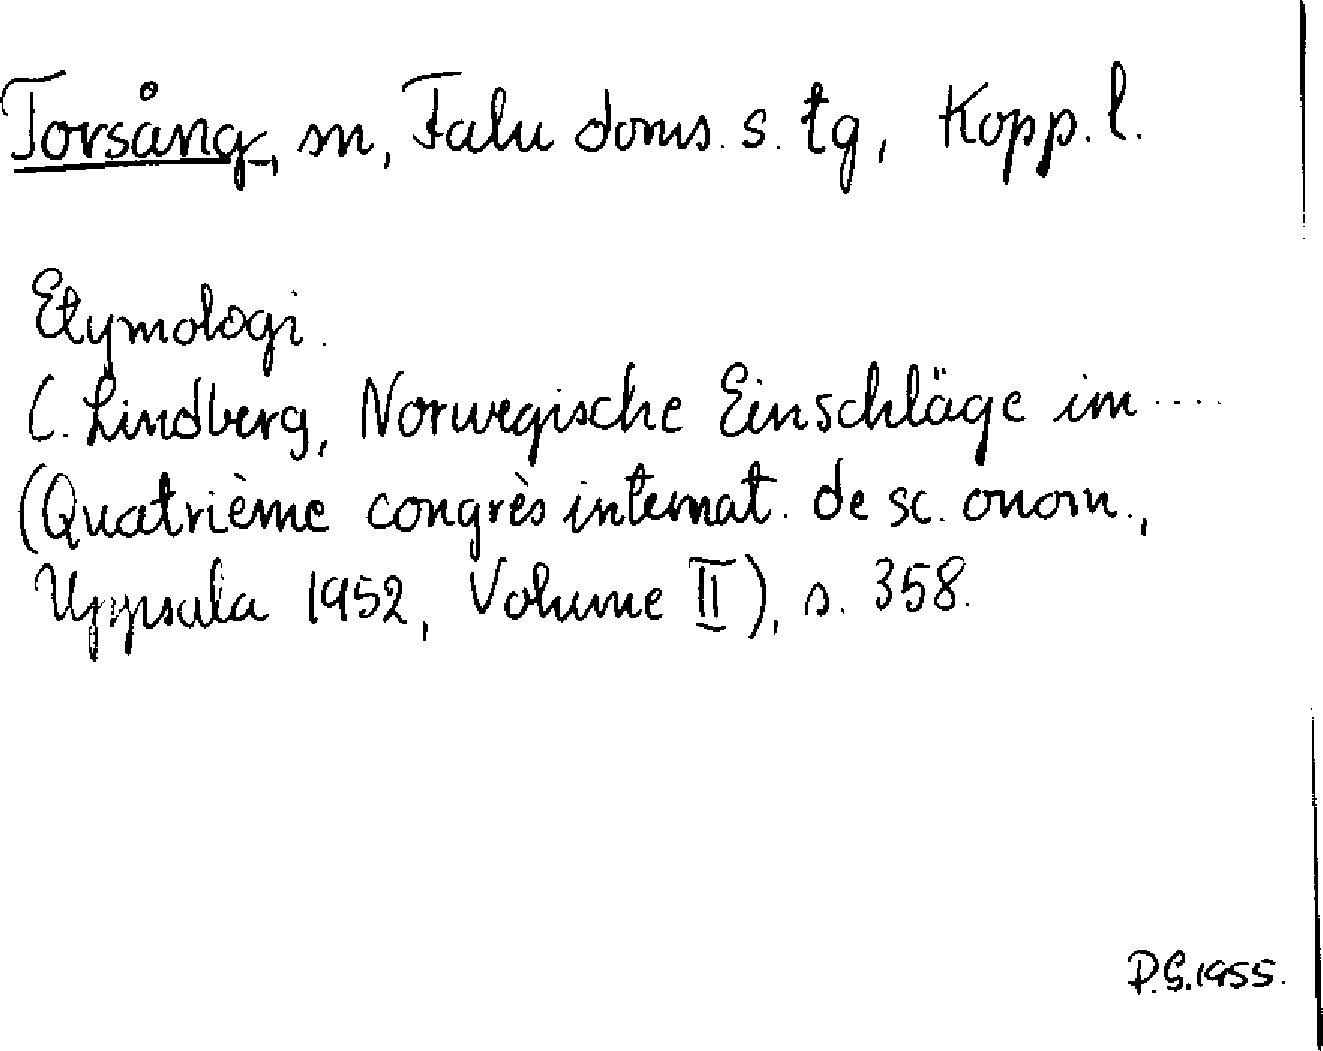 Torsång, sn, Falu doms. s. tg, Kopp. l.
Etymologi.
C. Lindberg, Norwegische Einschläge im ....
(Quatrième congrès internat. de sc. onom.,
Uppsala 1952, Volume II), s. 358.
P.G. 1955.